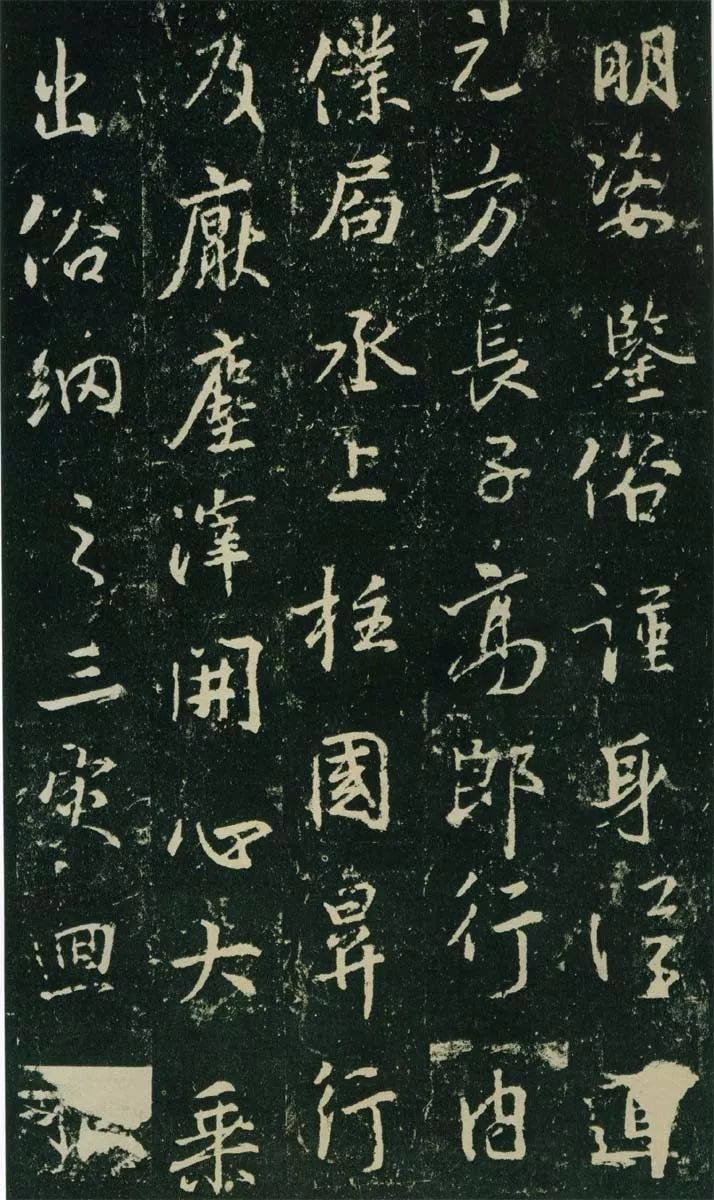 明姿鑒俗謹身
元方長子高郎行内
僕局丞上柱國昇行
及厭塵滓開心大乘
出俗納之三灾迴